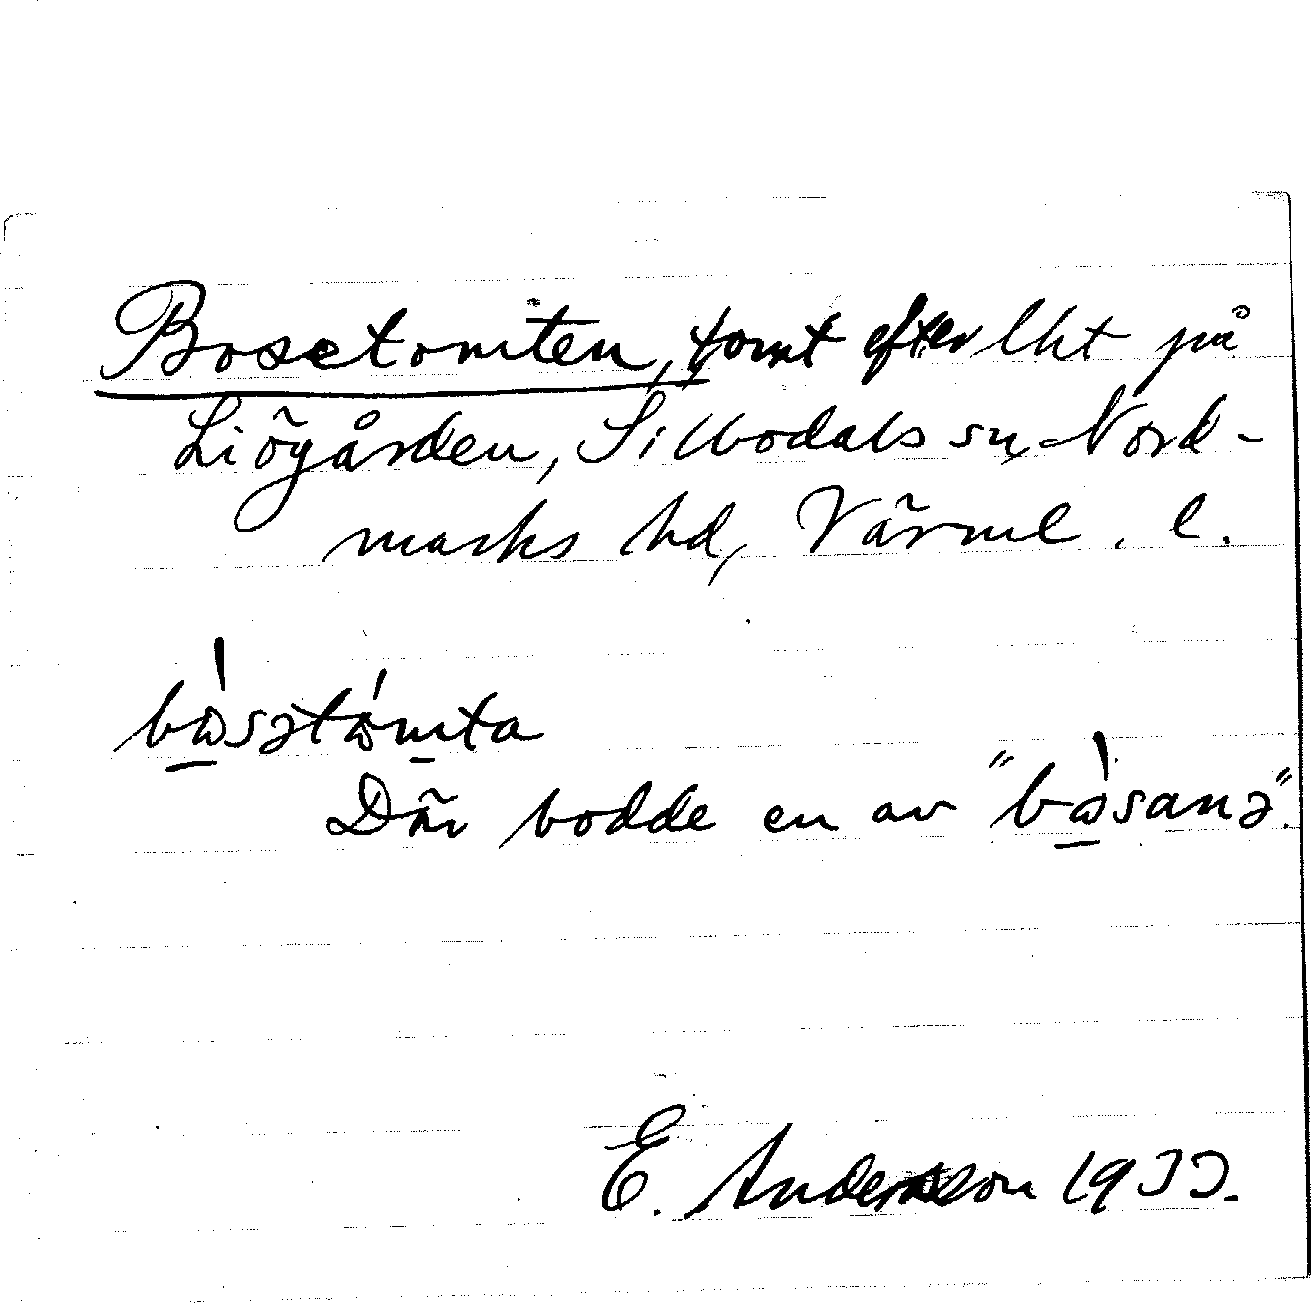 Bosetomten, tomt efter lht på
Liögården, Sillbodals sn, Nord-
marks hd, Värml. l.
bὰsətάmta
Där bodde en av "bὰsanə".
E. Andersson 1933.